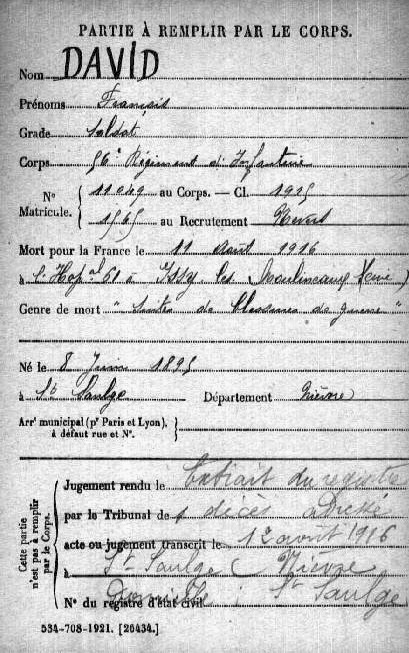 PARTIE À REMPLIR PAR LE CORPS.
Nom DAVID
Prénoms François
Grade Soldat
Corps 56e Régiment d'Infanterie
No Matricule. 11049 au Corps. — Cl. 1915
1565 au Recrutement Nevers
Mort pour la France le 11 Août 1916
à l'Hopal 61 à Issy les Moulineaux
Genre de mort " Suites de blessures de guerre "
Né le 8 Juin 1895
à St Saulge Département Nièvre
Arrt municipal (pr Paris et Lyon),
à défaut rue et No.
Cette partie
n'est pas à remplir
par le Corps.
Jugement rendu le Extrait du registre
par le Tribunal de décès adressé
acte ou jugement transcrit le août 1916
à St Saulge (Nièvre
No du registre d'état civil Domicile : St Saulge
534-708-1921. [26434.]